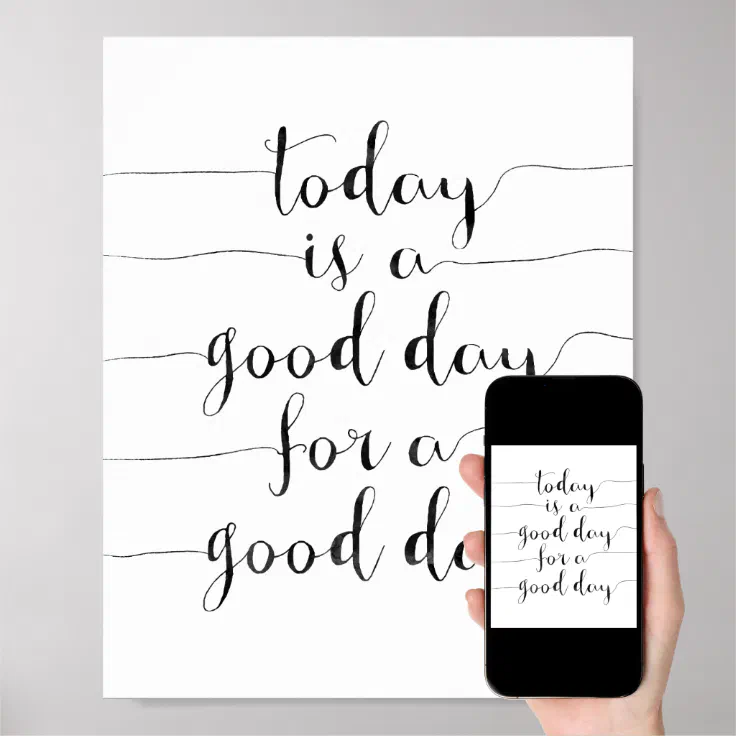 today
is a
good day
for a
good da
today
is a
good day
for a
good day